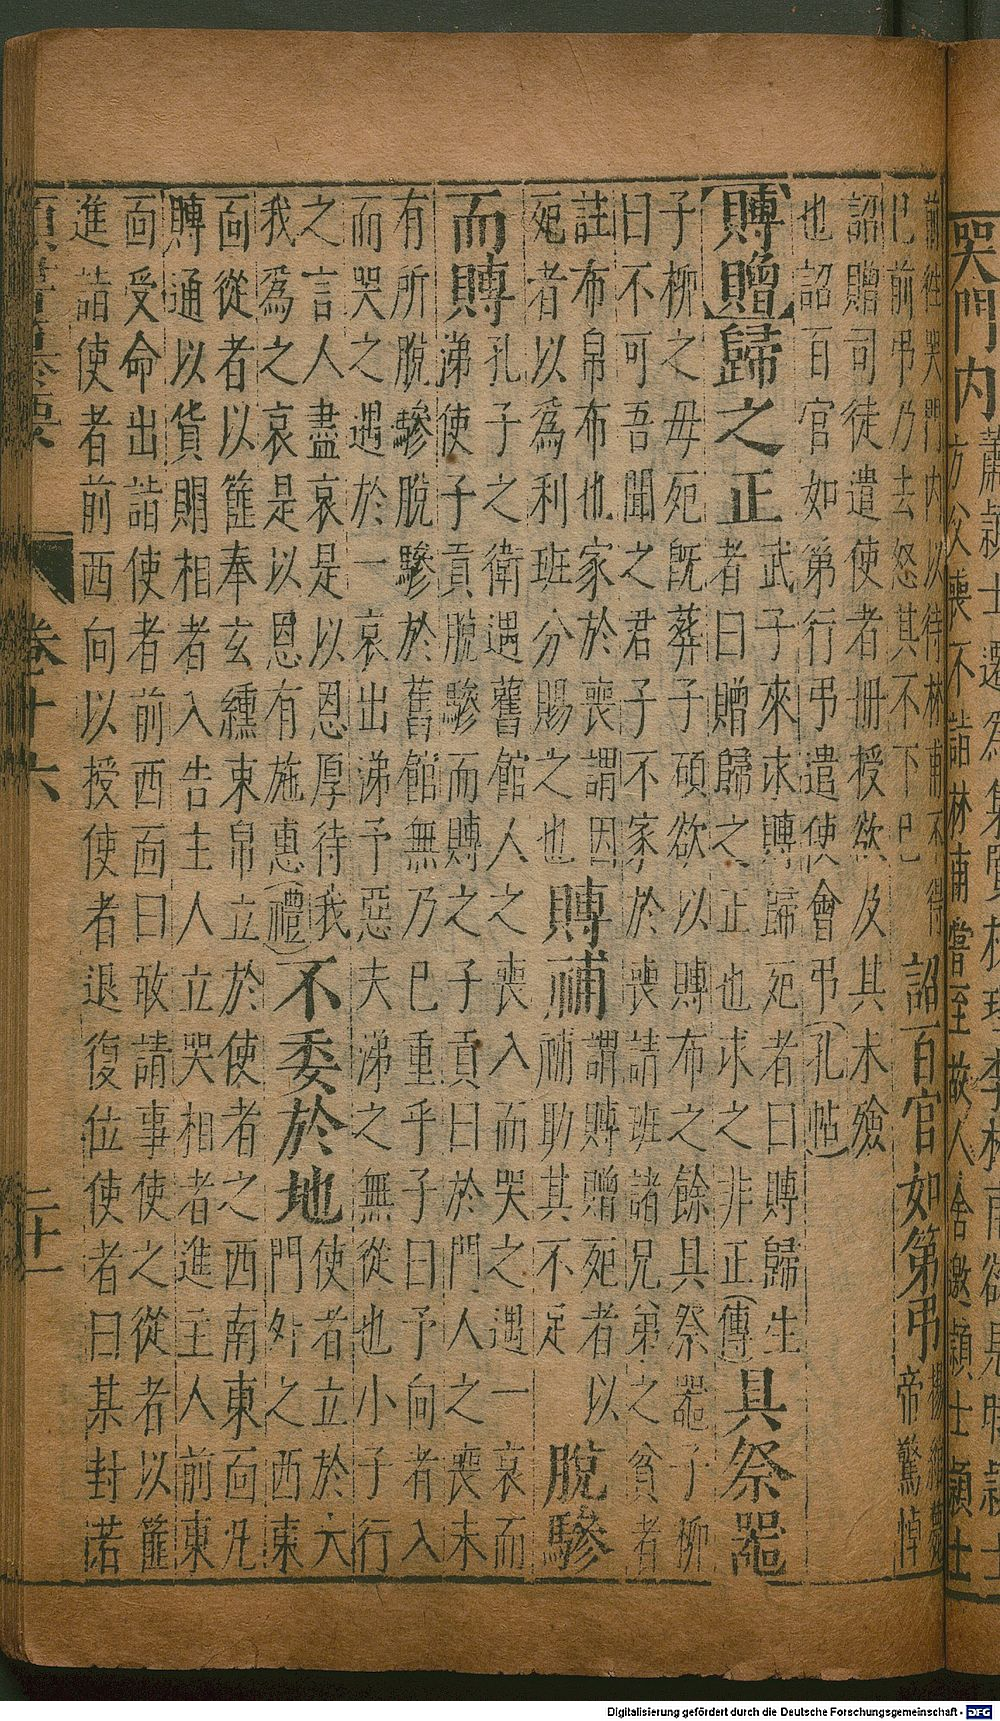 哭門內蕭潁士遷為集賢校理李林甫欲見時潁士
方父喪不詣林甫嘗至故人舍邀潁士潁士
前往哭門內以待林甫不得
已前弔乃去怒其不下已
詔百官如第弔楊綰薨
帝驚悼
詔贈司徒遣使者冊授欲及其未殮
也詔百官如第行弔遣使會弔(孔帖)
【賻贈】歸之正武子來求賻歸死者曰賻歸生
者曰贈歸之正也求之非正(傳)
具祭器
子柳之母死既葬子碩欲以賻布之餘具祭器子柳
曰不可吾聞之君子不家於喪請班諸兄弟之貧者
註布帛布也家於喪謂因
死者以為利班分賜之也
賻補謂賻贈死者以
補助其不足
脫驂
而賻孔子之衛遇舊館人之喪入而哭之遇一哀而
涕使子貢脫驂而賻之子貢曰於門人之喪未
有所脫驂脫驂於舊館無乃已重乎子曰予向者入
而哭之遇於一哀出涕予惡夫涕之無從也小子行
之言人盡哀是以恩厚待我
我為之哀是以恩有施惠(禮)
不委於地使者立於大
門外之西東
面從者以篚奉玄纁束帛立於使者之西南東面凡
賻通以貨賵相者入告主人立哭相者進主人前東
面受命出詣使者前西面曰敢請事使之從者以篚
進詣使者前西向以授使者退復位使者曰某封若
卷十六
二十一
Digitalisierung gefördert durch die Deutsche Forschungsgemeinschaft - DFG